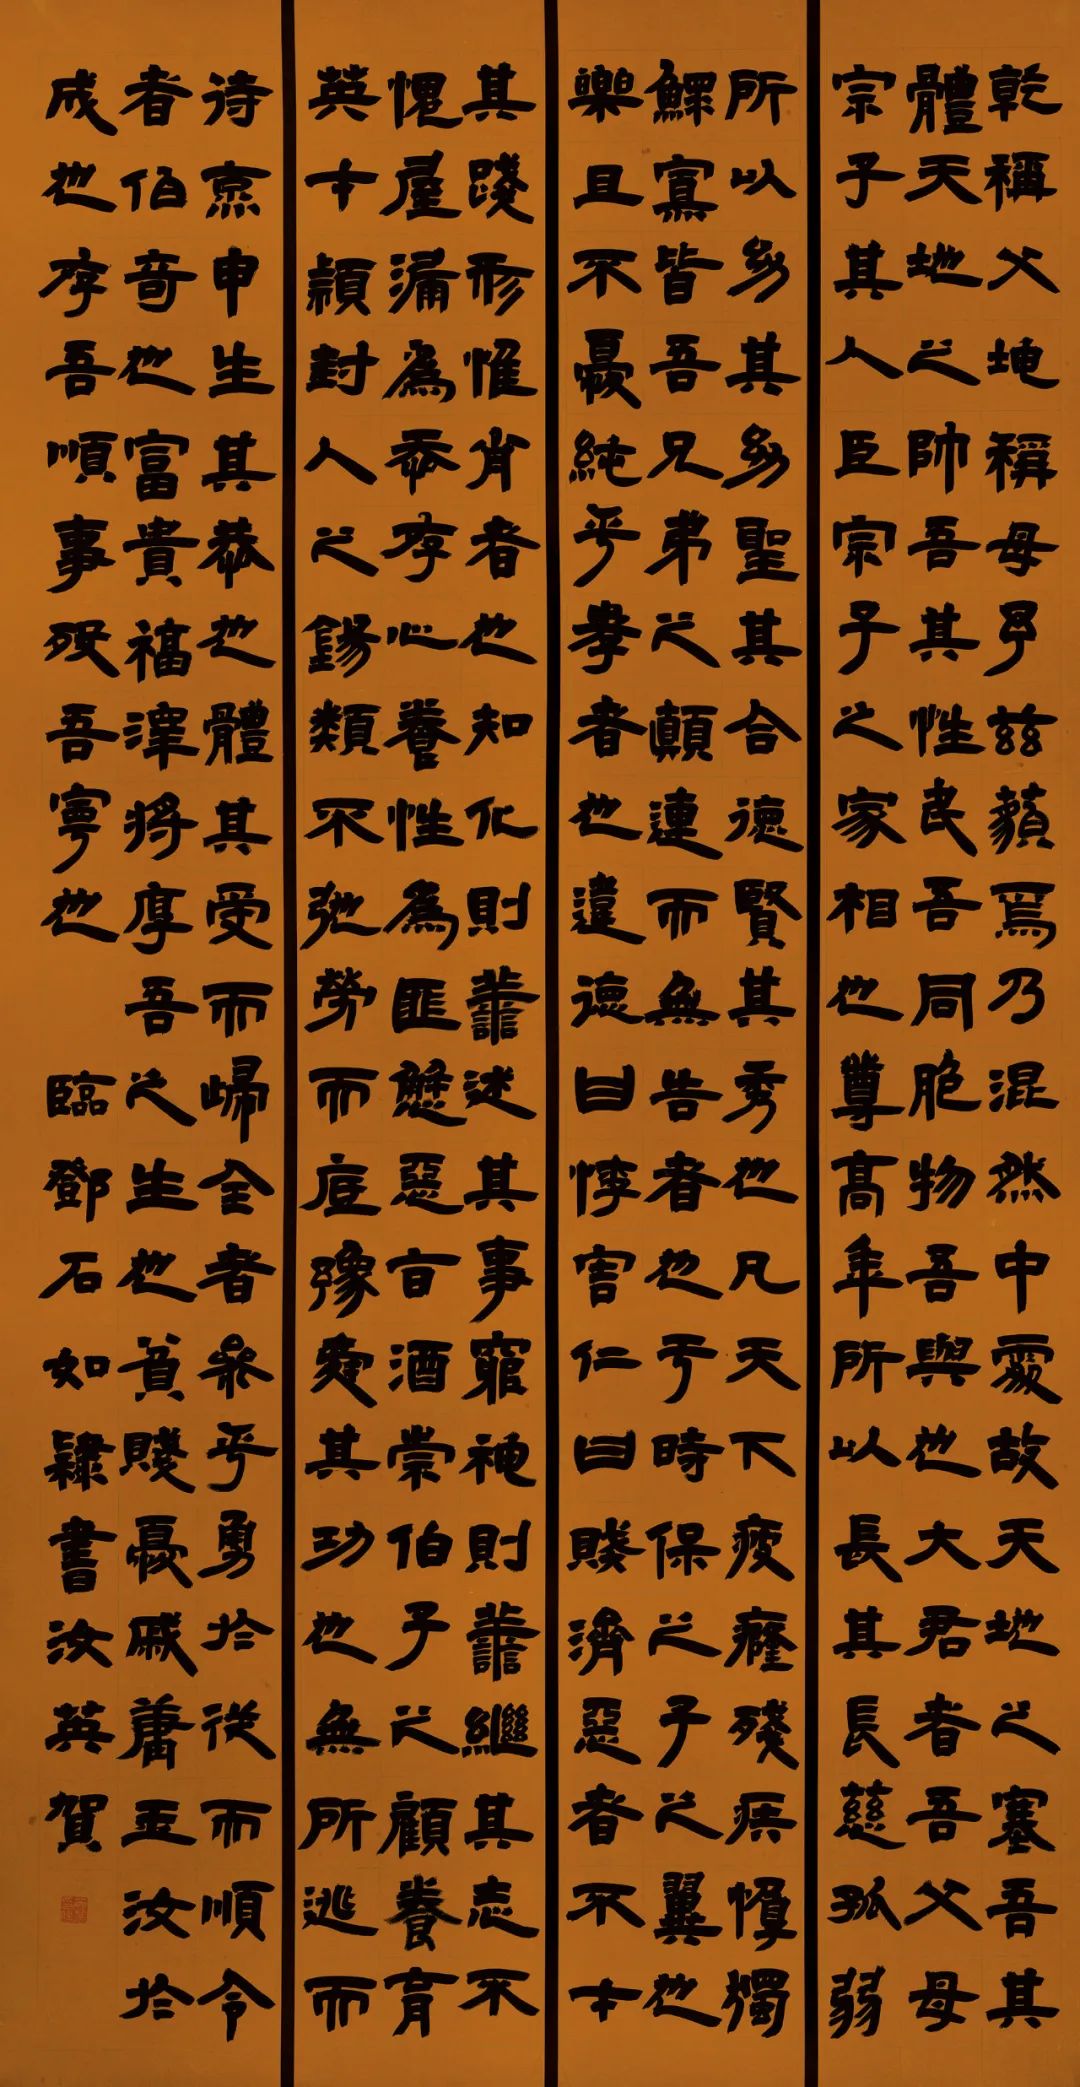 乾稱父坤稱母予茲藐焉乃混然中處故天地之塞吾其
體天地之帥吾其性民吾同胞物吾與也大君者吾父母
宗子其人臣宗子之家相也尊高年所以長其長慈孤弱
所以幼其幼聖其合德賢其秀也凡天下疲癃殘疾惸獨
鰥寡皆吾兄弟之顛連而無告者也于時保之子之翼也
樂且不憂純乎孝者也違德曰悖害仁曰賊濟惡者不才
其踐形惟肖者也知化則善述其事窮神則善繼其志不
愧屋漏為忝存心養性為匪懈惡旨酒崇伯子之顧養育
英才穎封人之錫類不弛勞而底豫舜其功也無所逃而
待烹申生其恭也體其受而歸全者參乎勇於從而順令
者伯奇也富貴福澤將厚吾之生也貧賤憂戚庸玉汝於
成也存吾順事歿吾寧也 臨鄧石如隸書汝英賀